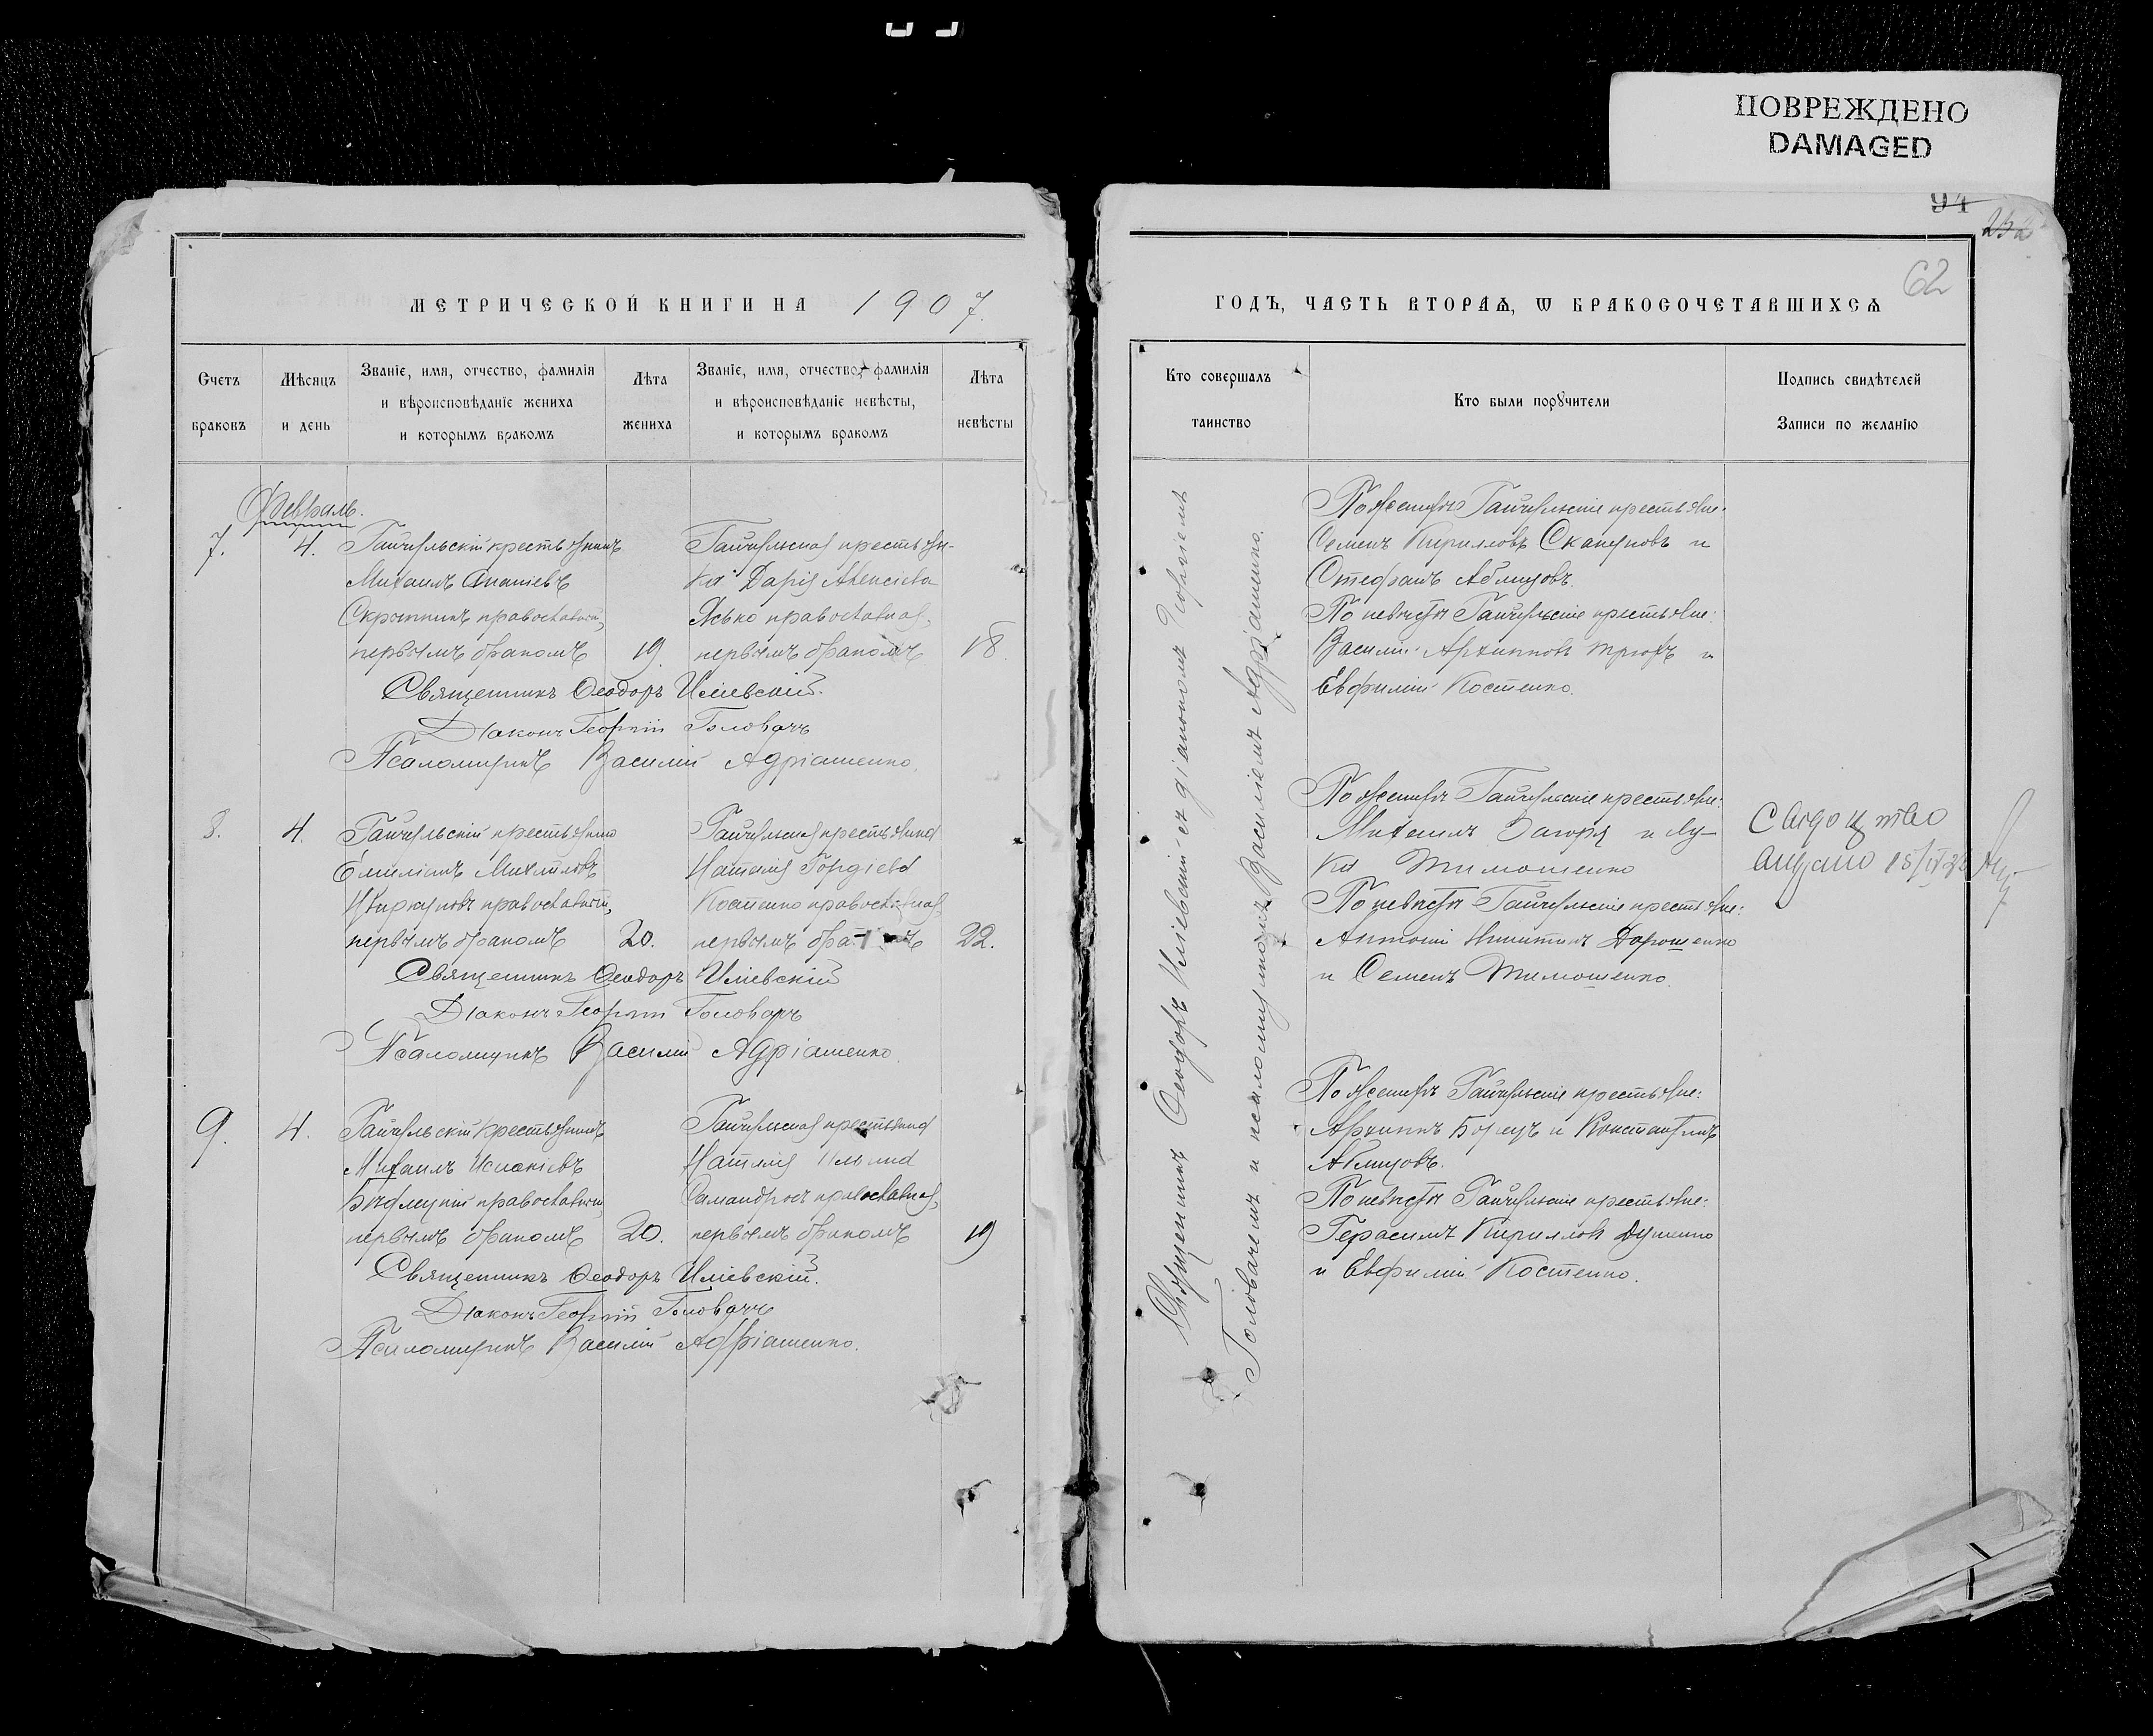 ПОВРЕЖДЕНО
DAMAGED
94
62
МЕТРИЧЕСКОЙ КНИГИ НА 1907.
Счетъ браковъ
Мѣсяцъ и день
Званіе, имя, отчество, фамилія
и вѣроисповѣданіе жениха
и которымъ бракомъ
Лѣта жениха
Званіе, имя, отчество, фамилія
и вѣроисповѣданіе невѣсты,
и которымъ бракомъ
Лѣта невѣсты
Февраль.
7. 4. Гайчульскій крестьянинъ
Михаилъ Ананіевъ
православный,
первымъ бракомъ 19.
Гайчульская крестьян-
ка Дарія
Ясько православная,
первымъ бракомъ 18.
Священникъ Ѳеодоръ Иліевскій.
Діаконъ Георгій Головачъ
Псаломщикъ Василій Адріашенко.
8. 4. Гайчульскій крестьянинъ
Емиліанъ Михайловъ
православный,
первымъ бракомъ 20.
Гайчульская крестьянка
Наталія Гордіева
Костенко православная,
первымъ 22.
Священникъ Ѳеодоръ Иліевскій
Діаконъ Георгій Головачъ
Псаломщикъ Василій Адріашенко.
9. 4. Гайчульскій крестьянинъ
Михаилъ
православный,
первымъ бракомъ 20.
Гайчульская крестьянка
Наталія
православная,
первымъ бракомъ 19
Священникъ Ѳеодоръ Иліевскій.
Діаконъ Георгій Головачъ
Псаломщикъ Василій Адріашенко.
ГОДЪ, ЧАСТЬ ВТОРАѦ, Ѡ БРАКОСОЧЕТАВШИХСѦ
Кто совершалъ
таинство
Кто были порꙋчители
Подпись свидѣтелей
Записи по желанію
Священникъ Ѳеодоръ Иліевскій съ діакономъ Георгіемъ
Головачемъ и псаломщикомъ Василіемъ Адріашенко.
По женихѣ Гайчульскіе крестьяне:
Семенъ Кирилловъ Скакуновъ и
Стефанъ Абмизовъ.
По невѣстѣ Гайчульскіе крестьяне:
Василій Архиповъ и
Евфимій Костенко.
По женихѣ Гайчульскіе крестьяне:
Михаилъ Загоря и Лу-
ка Тимошенко
По невѣстѣ Гайчульскіе крестьяне:
Антоній Никитинъ Дорошенко
и Семенъ Тимошенко.
По женихѣ Гайчульскіе крестьяне:
Архипъ и Константинъ
По невѣстѣ Гайчульскіе крестьяне:
Герасимъ Кирилловъ
и Евфимій Костенко.